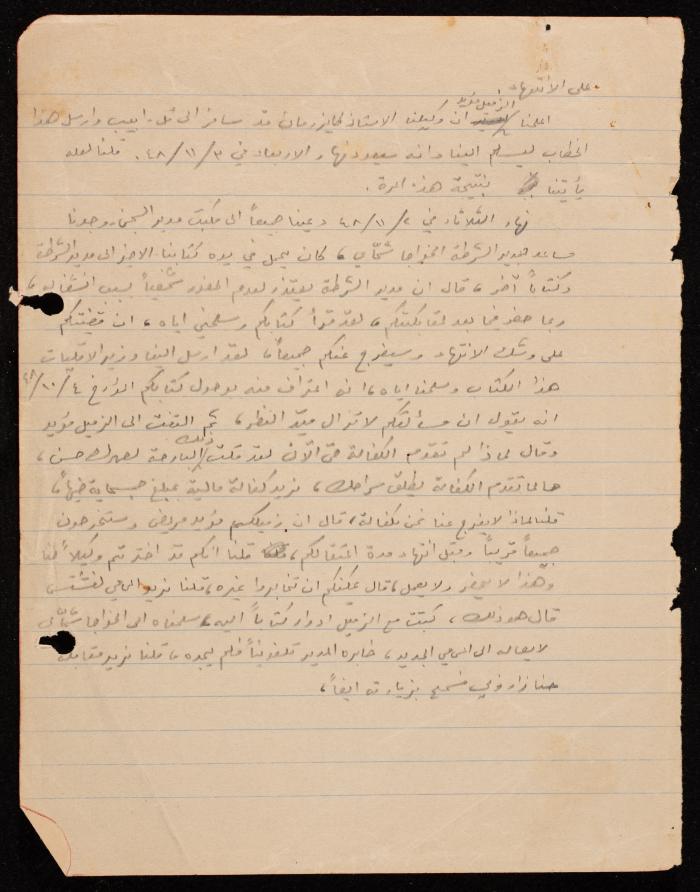 على الانتهاء
الزميل مؤيد
اعلمنا ان وكيلنا الاستاذ كايزرمان قد سافر الى تل-ابيب وارسل هذا
الخطاب ليسلم الينا وانه سيعود نهار الاربعاء في ٣/١١/٤٨. قلنا لعله
يأتينا بنتيجة هذه المرة.
نهار الثلاثاء في ٢/١١/٤٨ دعينا جميعاً الى مكتب مدير السجن وجدنا
مساعد مدير الشرطة الخواجا شمّاي، كان يحمل في يده كتابنا الاخير الى مدير الشرطة
وكتاباً آخر، قال ان مدير الشرطة يعتذر لعدم الحضور شخصياً بسبب انشغاله،
وربما حضر فيما بعد لمقابلتكم، لقد قرأ كتابكم وسلمني اياه، ان قضيتكم
على وشك الانتهاء وسيفرج عنكم جميعاً، لقد ارسل الينا وزير الاقليات
هذا الكتاب وسلمنا اياه، انه اعتراف منه بوصول كتابكم المؤرخ ٤/١٠/٤٨
انه يقول ان مسألتكم لا تزال قيد النظر، ثم التفت الى الزميل مؤيد
وقال لماذا لم تقدم الكفالة حتى الآن لقد قلت ذلك البارحة لصهرك حسن،
حالما تقدم الكفالة يطلق سراحك، نريد كفالة مالية بمبلغ خمسماية جنيهاً،
قلنا لماذا لا يفرج عنا نحن بكفالة، قال ان زميلكم مؤيد مريض وستخرجون
جميعاً قريباً وقبل انتهاء مدة اعتقالكم، قلنا انكم قد اخترتم وكيلاً لنا
وهذا لا يحضر ولا يعمل، قال يمكنكم ان تخابروا غيره، قلنا نريد المحامي
قال هو ذلك، كتبت مع الزميل ادوار كتاباً اليه، سلمناه الى الخواجا شمّاي
لايصاله الى المحامي الجديد، خابره المدير تلفونياً فلم يجده، قلنا نريد مقابلة
حنا زاروفي فسمح بزيارته ايضاً،